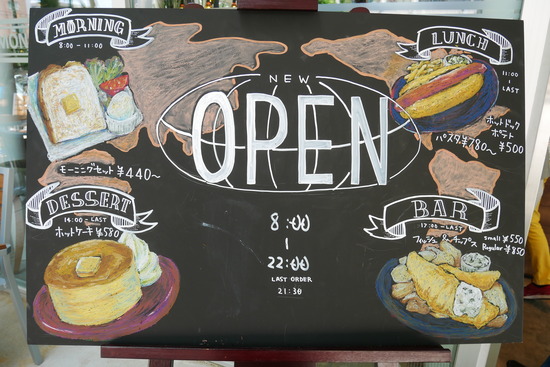 MORNING
8:00 - 11:00
モーニングセット ¥440〜
LUNCH
11:00
|
LAST
ホットドック
ポテト
¥500
パスタ ¥780〜
NEW
OPEN
8:00
|
22:00
LAST ORDER
21:30
DESSERT
14:00 - LAST
ホットケーキ ¥580
BAR
17:00 - LAST
フィッシュ&チップス
small ¥550
Regular ¥850